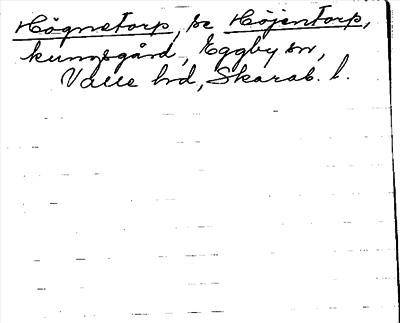 Högnetorp, se Höjentorp,
kungsgård, Eggby sn,
Valle hd, Skarab. l.